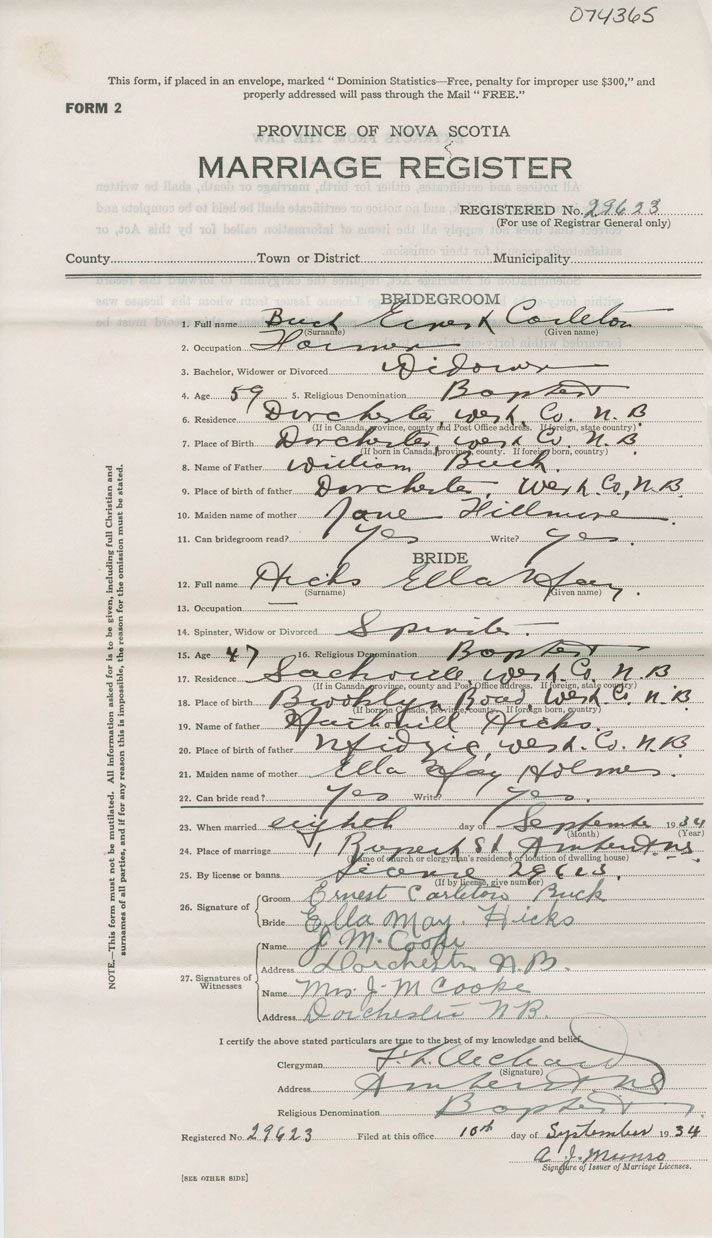 074365
This form, if placed in an envelope, marked "Dominion Statistics—Free, penalty for improper use $300," and
properly addressed will pass through the Mail "FREE."
FORM 2
PROVINCE OF NOVA SCOTIA
MARRIAGE REGISTER
REGISTERED No. 29623
(For use of Registrar General only)
County Town or District Municipality
BRIDEGROOM
1. Full name Buck Ernest Carleton
(Surname) (Given name)
2. Occupation Farmer
3. Bachelor, Widower or Divorced Widower
4. Age 59 5. Religious Denomination Baptist
6. Residence Dorchester, West. Co. N.B
(If in Canada, province, county and Post Office address. If foreign, state country)
7. Place of Birth Dorchester, West Co. N.B
(If born in Canada, province, county. If foreign born, country)
8. Name of Father William Buck.
9. Place of birth of father Dorchester, West. Co., N.B.
10. Maiden name of mother Jane Fillmore.
11. Can bridegroom read? Yes Write? Yes.
BRIDE
12. Full name Hicks Ella May.
(Surname) (Given name)
13. Occupation —
14. Spinster, Widow or Divorced Spinster.
15. Age 47 16. Religious Denomination Baptist
17. Residence Sackville, West. Co. N.B
(If in Canada, province, county and Post Office address. If foreign, state country)
18. Place of birth Brooklyn Road, West. Co. N.B.
(If born in Canada, province, county. If foreign born, country)
19. Name of father Hicks.
20. Place of birth of father West. Co. N.B.
21. Maiden name of mother Ella May Holmes.
22. Can bride read? Yes Write? Yes.
23. When married eighth day of September 1934
(Month) (Year)
24. Place of marriage Rupert St, Amherst, N.S.
(Name of church or clergyman's residence or location of dwelling house)
25. By license or banns License 29623.
(If by license, give number)
26. Signature of Groom Ernest Carleton Buck
Bride Ella May. Hicks
27. Signatures of Witnesses
Name J. M. Cooke
Address Dorchester N.B.
Name Mrs J. M Cooke
Address Dorchester N.B.
I certify the above stated particulars are true to the best of my knowledge and belief.
Clergyman
(Signature)
Address Amherst, NS
Religious Denomination Baptist.
Registered No. 29623 Filed at this office 10th day of September 1934
A. J. Munro
Signature of Issuer of Marriage Licenses.
[SEE OTHER SIDE]
NOTE.—This form must not be mutilated. All information asked for is to be given, including full Christian and
surnames of all parties, and if for any reason this is impossible, the reason for the omission must be stated.